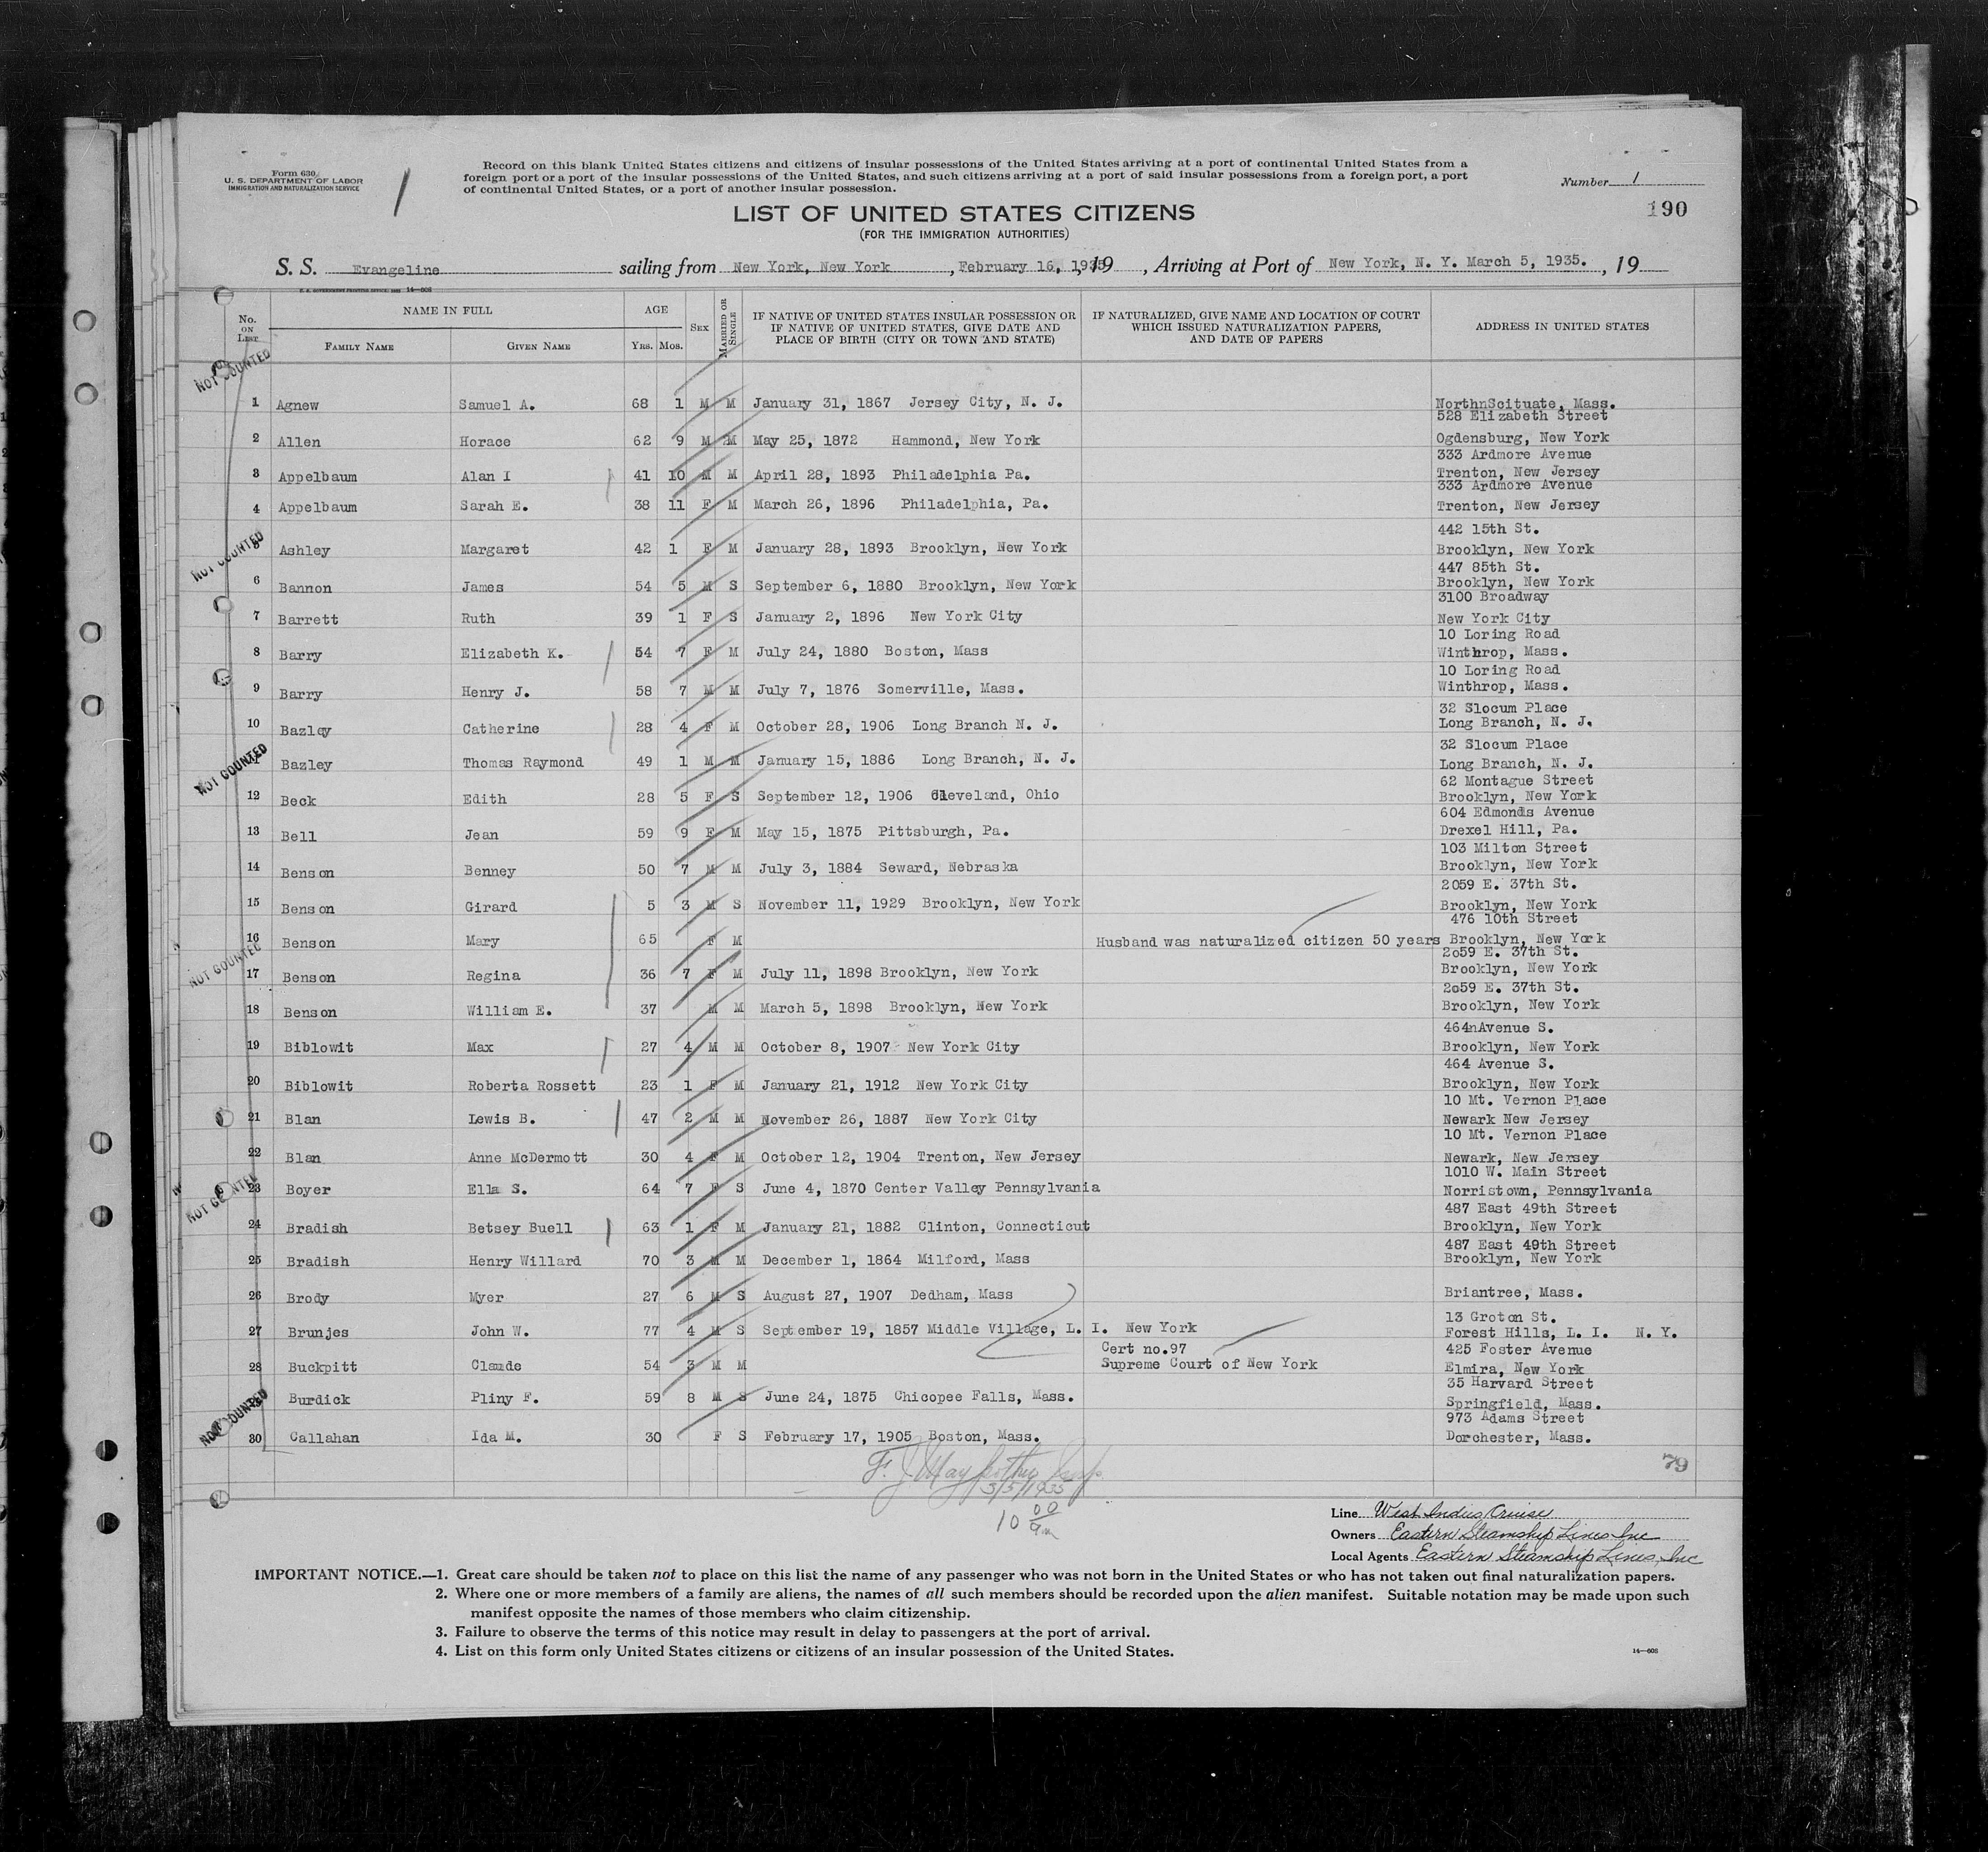 Form 630
U. S. DEPARTMENT OF LABOR
IMMIGRATION AND NATURALIZATION SERVICE
1
Record on this blank United States citizens and citizens of insular possessions of the United States arriving at a port of continental United States from a
foreign port or a port of the insular possessions of the United States, and such citizens arriving at a port of said insular possessions from a foreign port, a port
of continental United States, or a port of another insular possession.
Number 1
190
LIST OF UNITED STATES CITIZENS
(FOR THE IMMIGRATION AUTHORITIES)
S. S. Evangeline sailing from New York, New York, February 16, 1935, 19 , Arriving at Port of New York, N. Y. March 5, 1935. , 19
No. ON LIST
NAME IN FULL
FAMILY NAME GIVEN NAME
AGE
YRS. MOS.
SEX
MARRIED OR SINGLE
IF NATIVE OF UNITED STATES INSULAR POSSESSION OR
IF NATIVE OF UNITED STATES, GIVE DATE AND
PLACE OF BIRTH (CITY OR TOWN AND STATE)
IF NATURALIZED, GIVE NAME AND LOCATION OF COURT
WHICH ISSUED NATURALIZATION PAPERS,
AND DATE OF PAPERS
ADDRESS IN UNITED STATES
NOT COUNTED
1 Agnew Samuel A. 68 1 M M January 31, 1867 Jersey City, N. J. NorthnScituate, Mass.
528 Elizabeth Street
2 Allen Horace 62 9 M M May 25, 1872 Hammond, New York Ogdensburg, New York
333 Ardmore Avenue
3 Appelbaum Alan I 41 10 M M April 28, 1893 Philadelphia Pa. Trenton, New Jersey
333 Ardmore Avenue
4 Appelbaum Sarah E. 38 11 F M March 26, 1896 Philadelphia, Pa. Trenton, New Jersey
442 15th St.
NOT COUNTED
5 Ashley Margaret 42 1 F M January 28, 1893 Brooklyn, New York Brooklyn, New York
447 85th St.
6 Bannon James 54 5 M S September 6, 1880 Brooklyn, New York Brooklyn, New York
3100 Broadway
7 Barrett Ruth 39 1 F S January 2, 1896 New York City New York City
10 Loring Road
8 Barry Elizabeth K. 54 7 F M July 24, 1880 Boston, Mass Winthrop, Mass.
10 Loring Road
9 Barry Henry J. 58 7 M M July 7, 1876 Somerville, Mass. Winthrop, Mass.
32 Slocum Place
10 Bazley Catherine 28 4 F M October 28, 1906 Long Branch N. J. Long Branch, N. J.
32 Slocum Place
NOT COUNTED
11 Bazley Thomas Raymond 49 1 M M January 15, 1886 Long Branch, N. J. Long Branch, N. J.
62 Montague Street
12 Beck Edith 28 5 F S September 12, 1906 Cleveland, Ohio Brooklyn, New York
604 Edmonds Avenue
13 Bell Jean 59 9 F M May 15, 1875 Pittsburgh, Pa. Drexel Hill, Pa.
103 Milton Street
14 Benson Benney 50 7 M M July 3, 1884 Seward, Nebraska Brooklyn, New York
2059 E. 37th St.
15 Benson Girard 5 3 M S November 11, 1929 Brooklyn, New York Brooklyn, New York
476 10th Street
16 Benson Mary 65 F M Husband was naturalized citizen 50 years Brooklyn, New York
2059 E. 37th St.
NOT COUNTED
17 Benson Regina 36 7 F M July 11, 1898 Brooklyn, New York Brooklyn, New York
2059 E. 37th St.
18 Benson William E. 37 M M March 5, 1898 Brooklyn, New York Brooklyn, New York
464nAvenue S.
19 Biblowit Max 27 4 M M October 8, 1907 New York City Brooklyn, New York
464 Avenue S.
20 Biblowit Roberta Rossett 23 1 F M January 21, 1912 New York City Brooklyn, New York
10 Mt. Vernon Place
21 Blan Lewis B. 47 2 M M November 26, 1887 New York City Newark New Jersey
10 Mt. Vernon Place
22 Blan Anne McDermott 30 4 F M October 12, 1904 Trenton, New Jersey Newark, New Jersey
1010 W. Main Street
NOT COUNTED
23 Boyer Ella S. 64 7 F S June 4, 1870 Center Valley Pennsylvania Norristown, Pennsylvania
487 East 49th Street
24 Bradish Betsey Buell 63 1 F M January 21, 1882 Clinton, Connecticut Brooklyn, New York
487 East 49th Street
25 Bradish Henry Willard 70 3 M M December 1, 1864 Milford, Mass Brooklyn, New York
26 Brody Myer 27 6 M S August 27, 1907 Dedham, Mass Briantree, Mass.
13 Groton St.
27 Brunjes John W. 77 4 M S September 19, 1857 Middle Village, L. I. New York Forest Hills, L. I. N. Y.
Cert no.97 425 Foster Avenue
28 Buckpitt Claude 54 3 M M Supreme Court of New York Elmira, New York
35 Harvard Street
29 Burdick Pliny F. 59 8 M S June 24, 1875 Chicopee Falls, Mass. Springfield, Mass.
973 Adams Street
NOT COUNTED
30 Callahan Ida M. 30 F S February 17, 1905 Boston, Mass. Dorchester, Mass.
79
3/5/1935
10 00 am
Line West Indies Cruise
Owners Eastern Steamship Lines Inc
Local Agents Eastern Steamship Lines, Inc
IMPORTANT NOTICE.—1. Great care should be taken not to place on this list the name of any passenger who was not born in the United States or who has not taken out final naturalization papers.
2. Where one or more members of a family are aliens, the names of all such members should be recorded upon the alien manifest. Suitable notation may be made upon such
manifest opposite the names of those members who claim citizenship.
3. Failure to observe the terms of this notice may result in delay to passengers at the port of arrival.
4. List on this form only United States citizens or citizens of an insular possession of the United States.
14—608